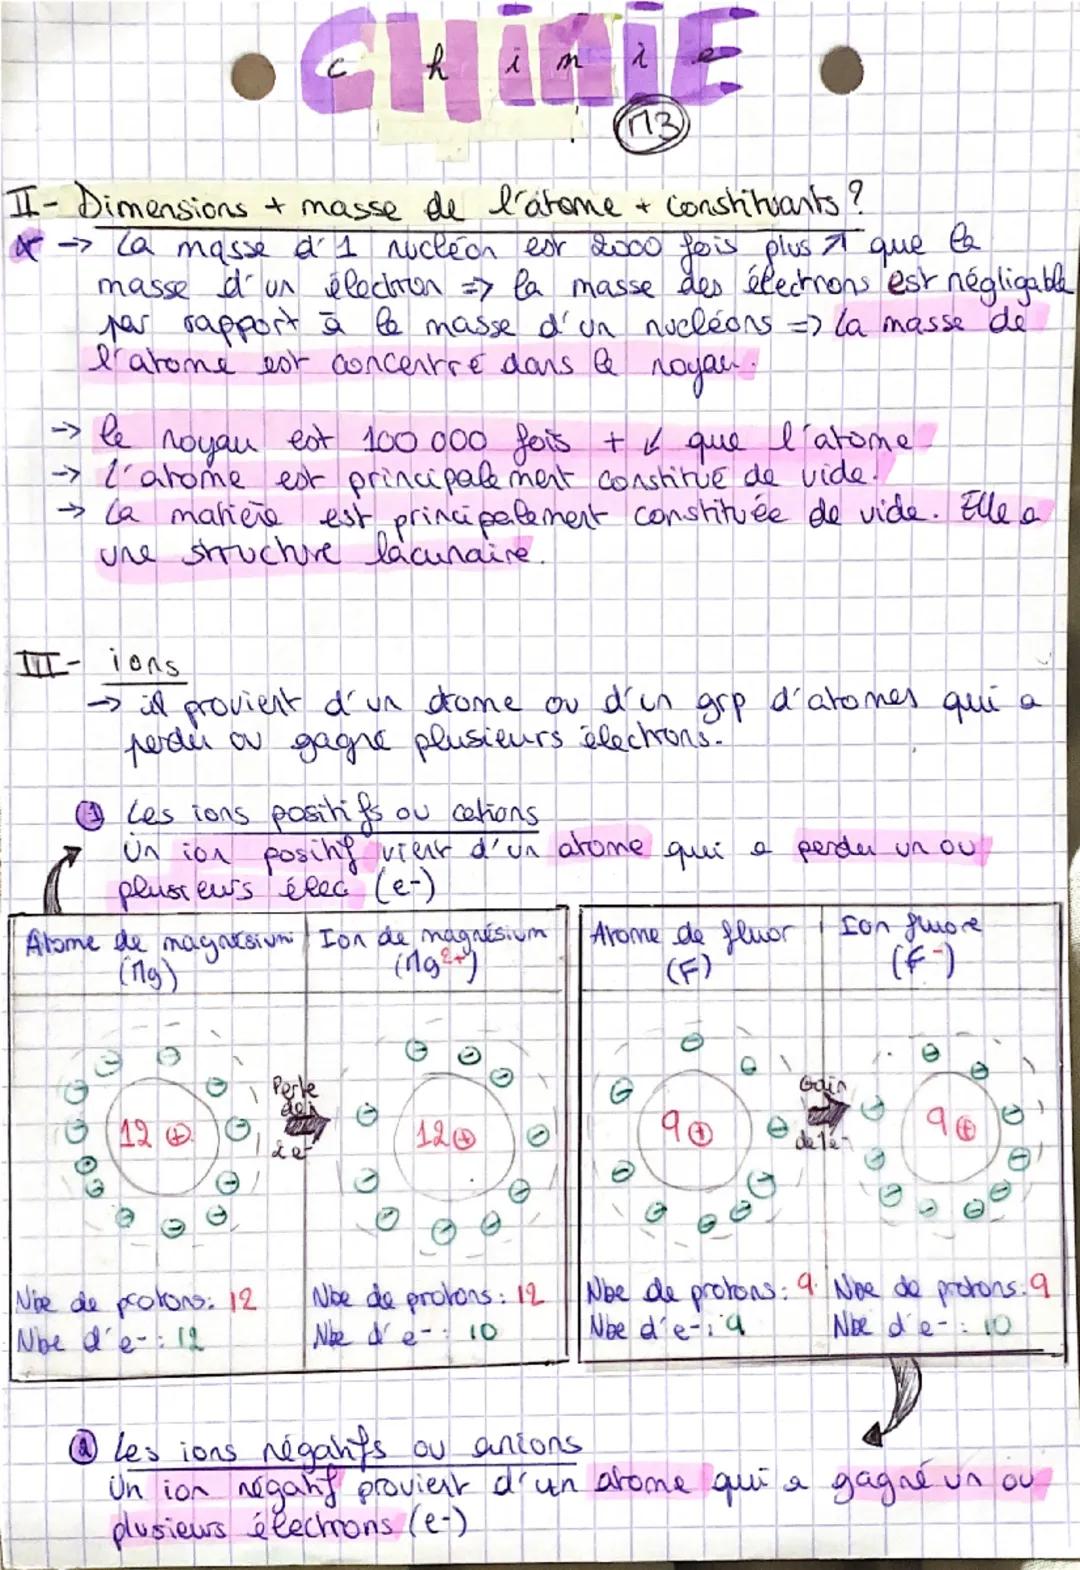 CHIMIE
c h i m i e
M3
II- Dimensions + masse de l'atome + constituants ?
→ La masse d'1 nucléon est 2000 fois plus ↗ que la
masse d'un électron => la masse des électrons est négligable
par rapport à la masse d'un nucléons => la masse de
l'atome est concentré dans le noyau.
→ le noyau est 100 000 fois + ↙ que l'atome
→ L'atome est principalement constitué de vide.
→ La matière est principalement constituée de vide. Elle a
une structure lacunaire.
III- ions
→ il provient d'un atome ou d'un grp d'atomes qui a
perdu ou gagné plusieurs électrons.
① Les ions positifs ou cations
Un ion positif vient d'un atome qui a perdu un ou
plusieurs élec (e-)
Atome de magnésium (Mg)
Ion de magnésium (Mg²⁺)
Atome de fluor (F)
Ion fluore (F⁻)
12 ⊕
Perte de 2 e-
12 ⊕
9 ⊕
Gain de 1 e-
9 ⊕
Nbe de protons: 12
Nbe d'e-: 12
Nbe de protons: 12
Nbe d'e-: 10
Nbe de protons: 9
Nbe d'e-: 9
Nbe de protons: 9
Nbe d'e-: 10
② Les ions négatifs ou anions
Un ion négatif provient d'un atome qui a gagné un ou
plusieurs électrons (e-)